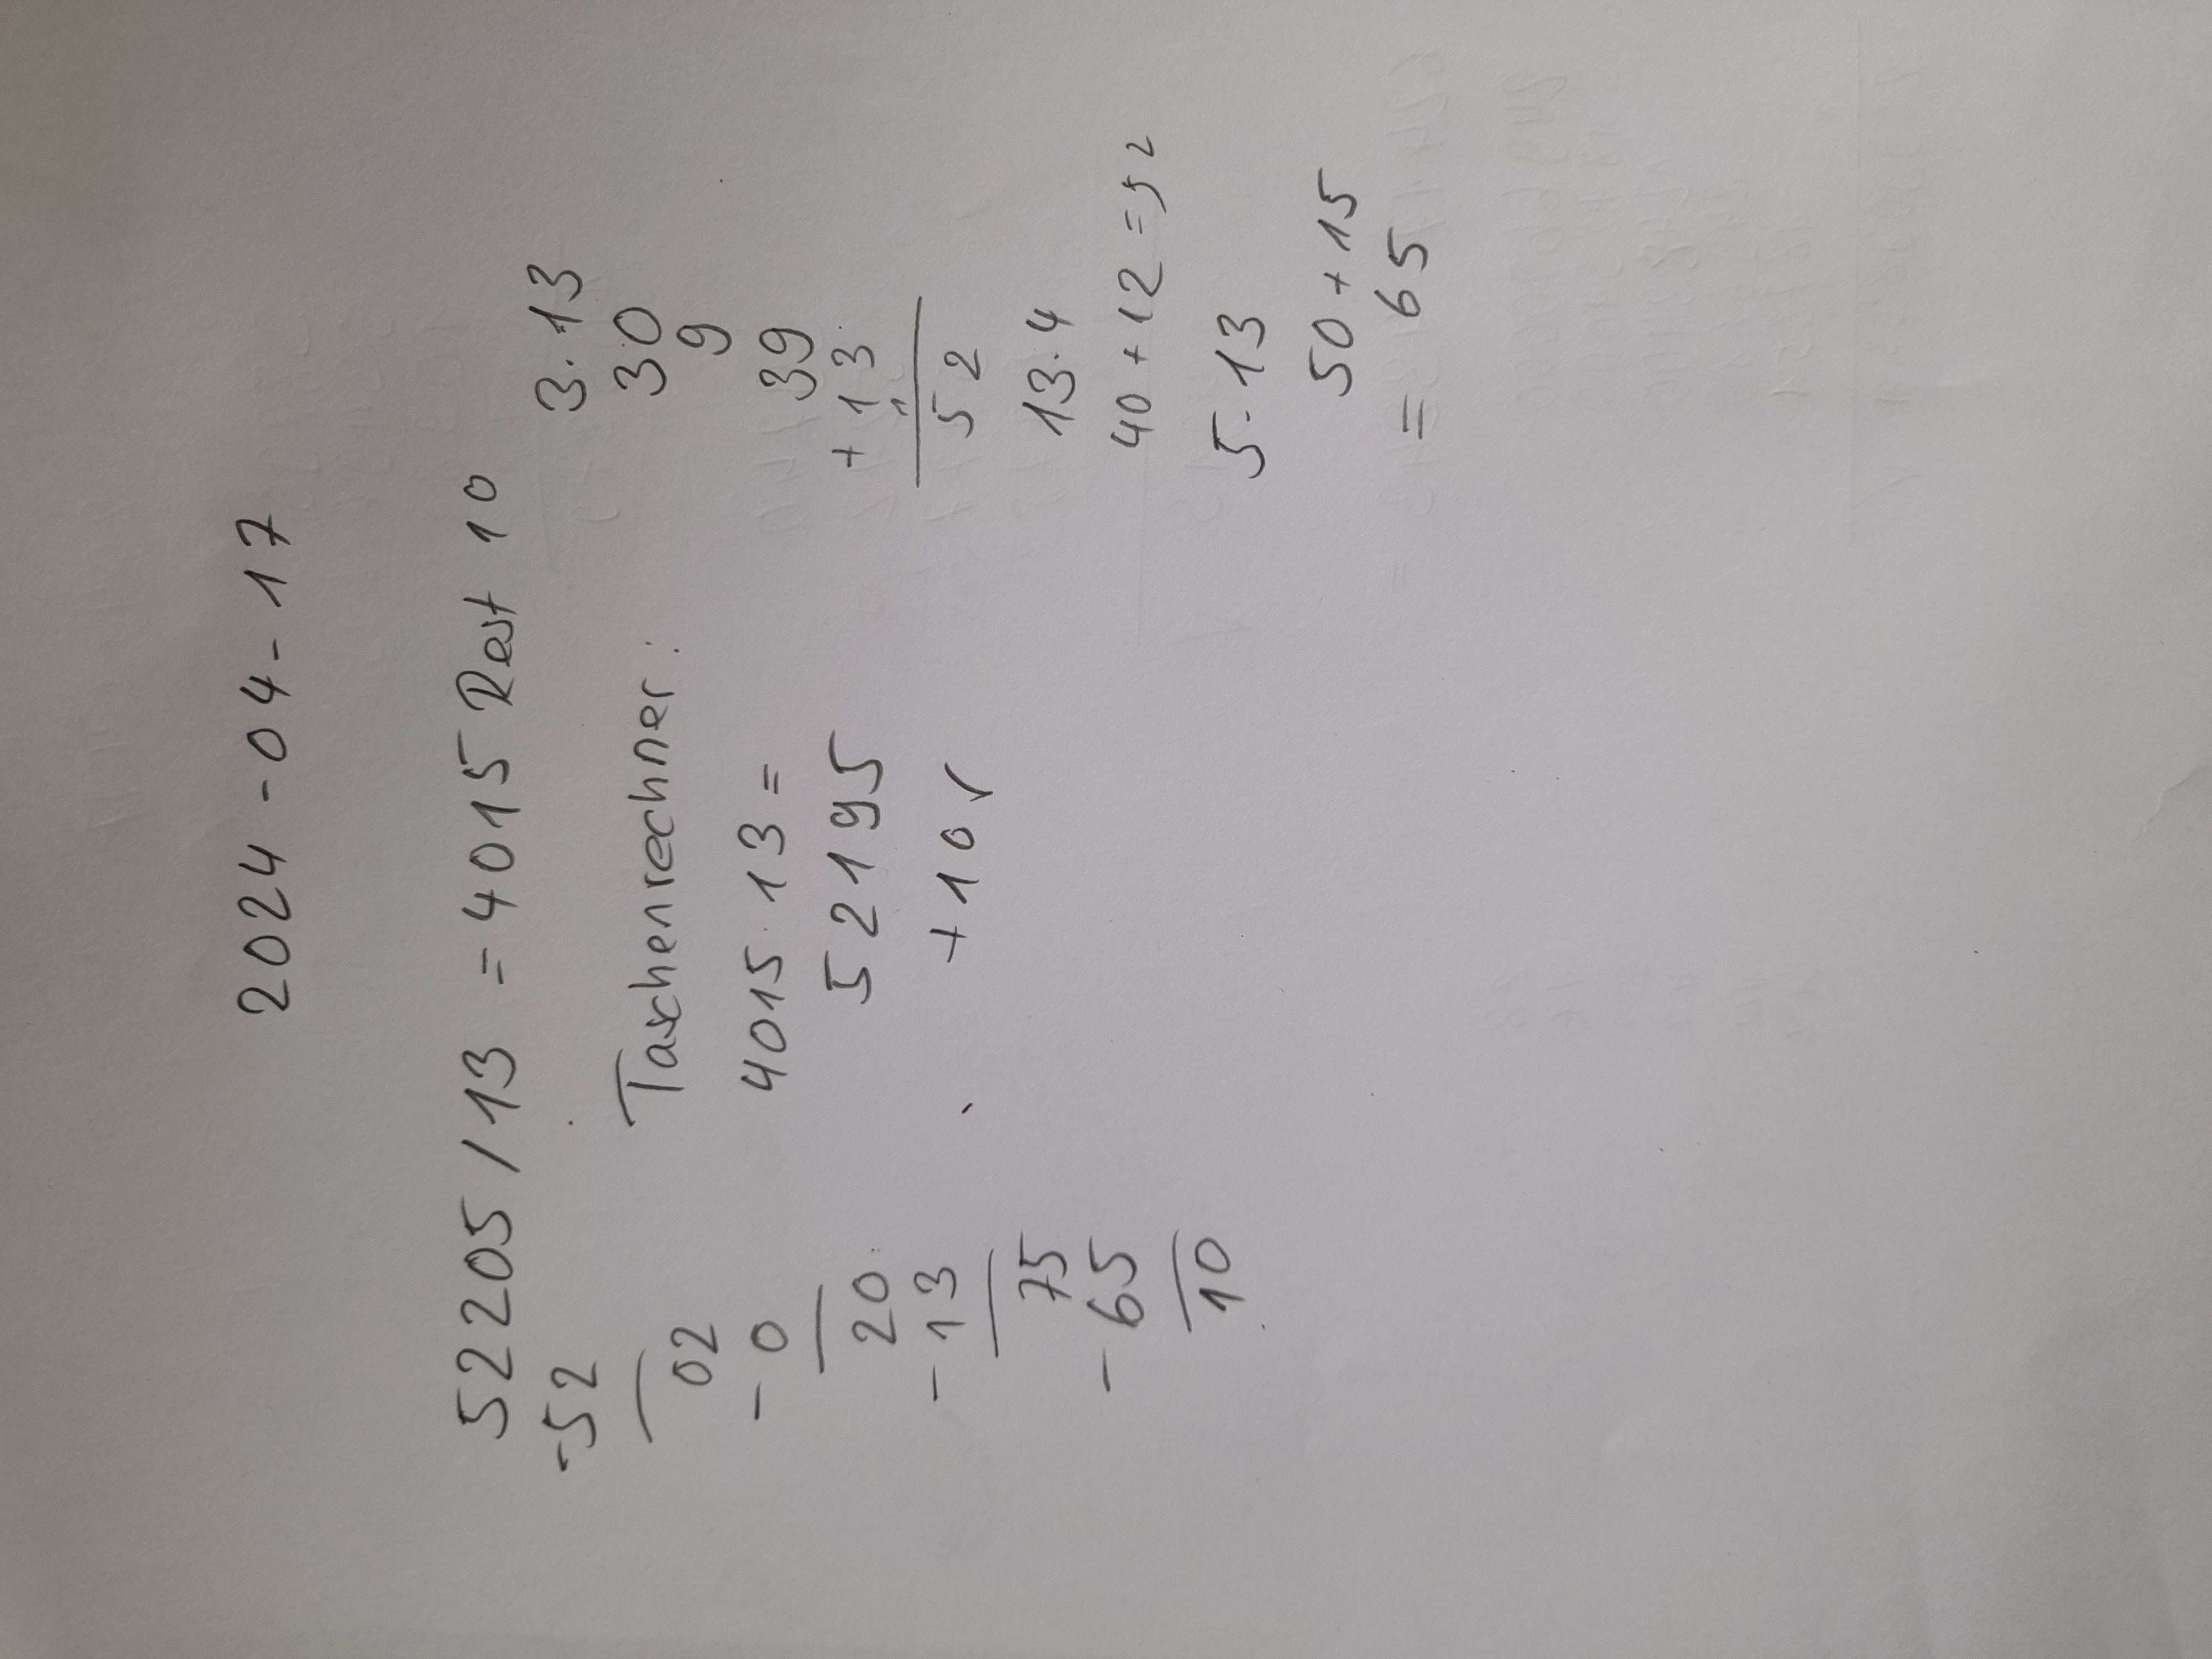 2024-04-17
52205/13 = 4015 Rest 10
-52
02
- 0
20
- 13
75
- 65
10
Taschenrechner:
4015·13=
52195
+10 ✓
3·13
30
9
39
+ 13
1
52
13·4
40+12=52
5·13
50+15
= 65